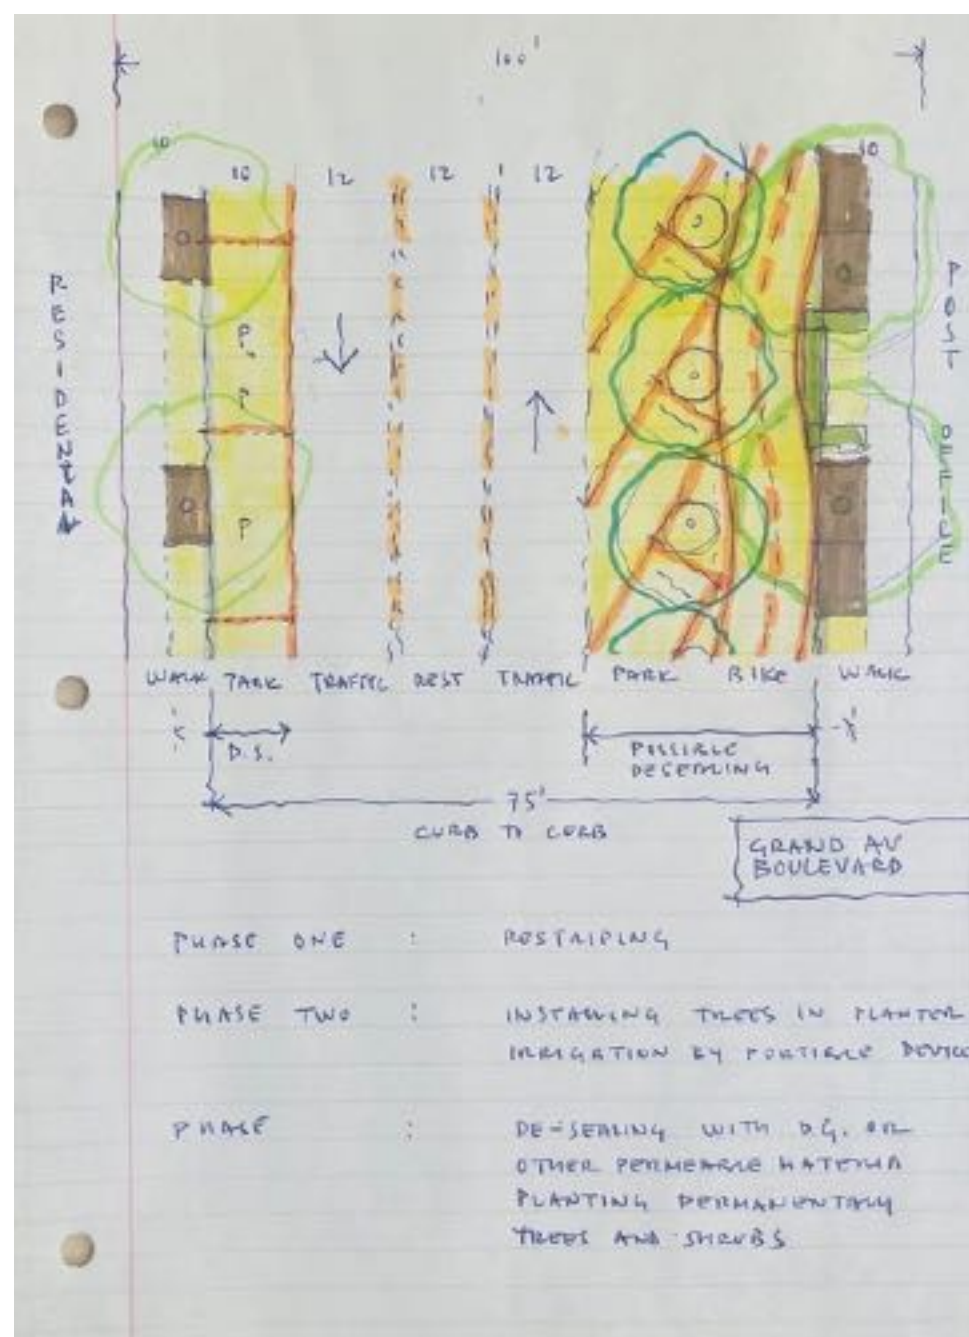 100'
10
10
12
12
12
10
RESIDENTAL
P.
P
P
POST OFFICE
WALK PARK TRAFFIC REST TRAFFIC PARK BIKE WALK
D.S.
POSSIBLE
DESEALING
75'
CURB TO CURB
GRAND AV
BOULEVARD
PHASE ONE : RESTRIPING
PHASE TWO : INSTALLING TREES IN PLANTER
IRRIGATION BY PORTIBLE DEVICE
PHASE : DE-SEALING WITH D.G. OR
OTHER PERMEABLE MATERIA
PLANTING PERMANENTALY
TREES AND SHRUBS